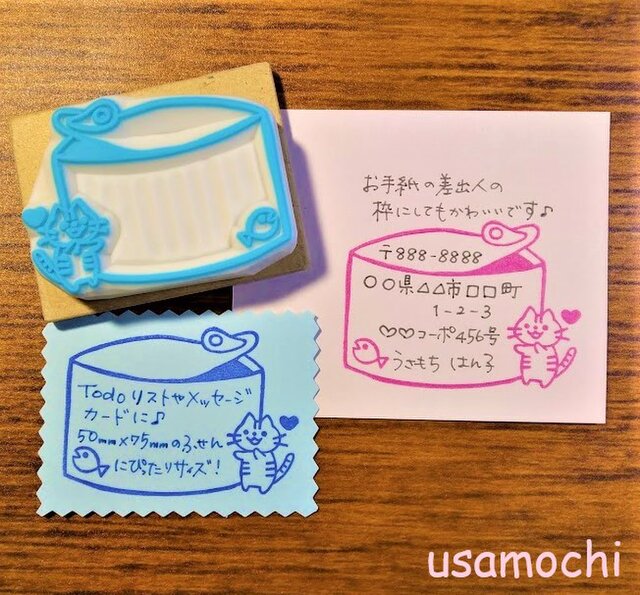 お手紙の差出人の
枠にしてもかわいいです♪
〒888-8888
○○県△△市□□町
1-2-3
♡♡コーポ456号
うさもち はん子
Todoリストやメッセージ
カードに♪
50mm×75mmのふせん
にぴったりサイズ!
usamochi